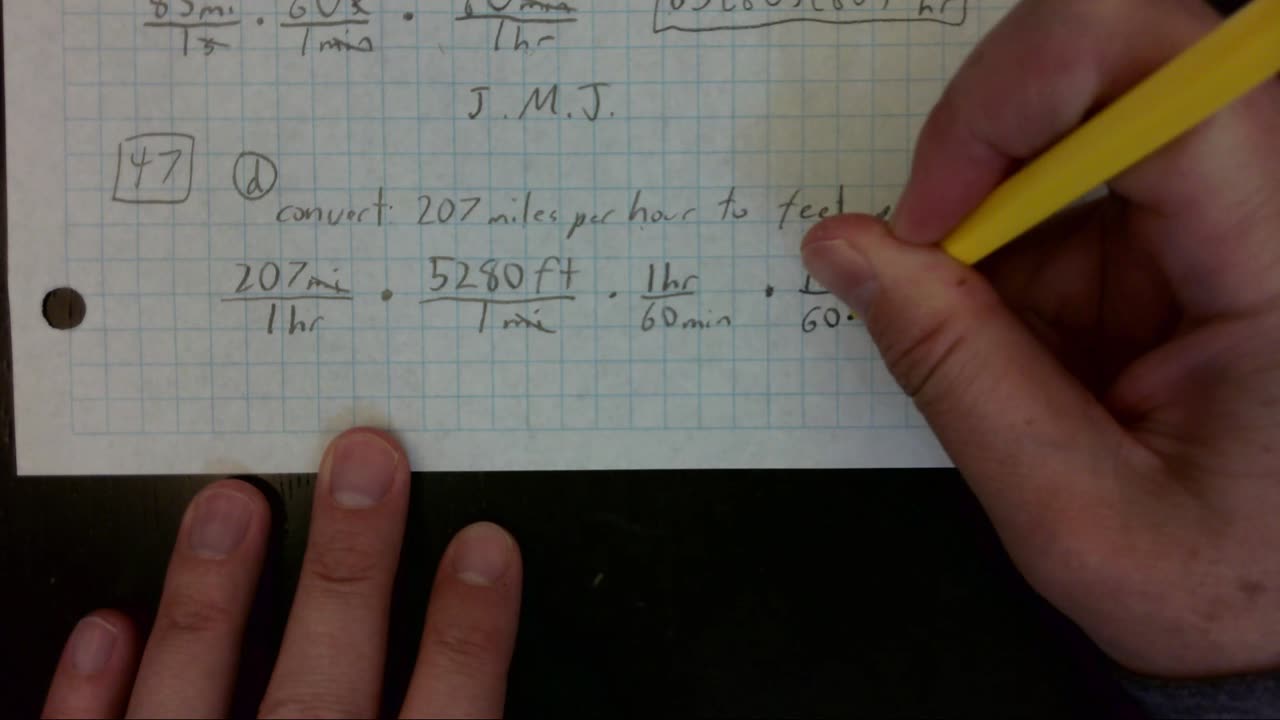 85mi/1s · 60s/1min · 60min/1hr
J.M.J.
47 d
convert: 207 miles per hour to feet
207mi/1hr · 5280ft/1mi · 1hr/60min · 60